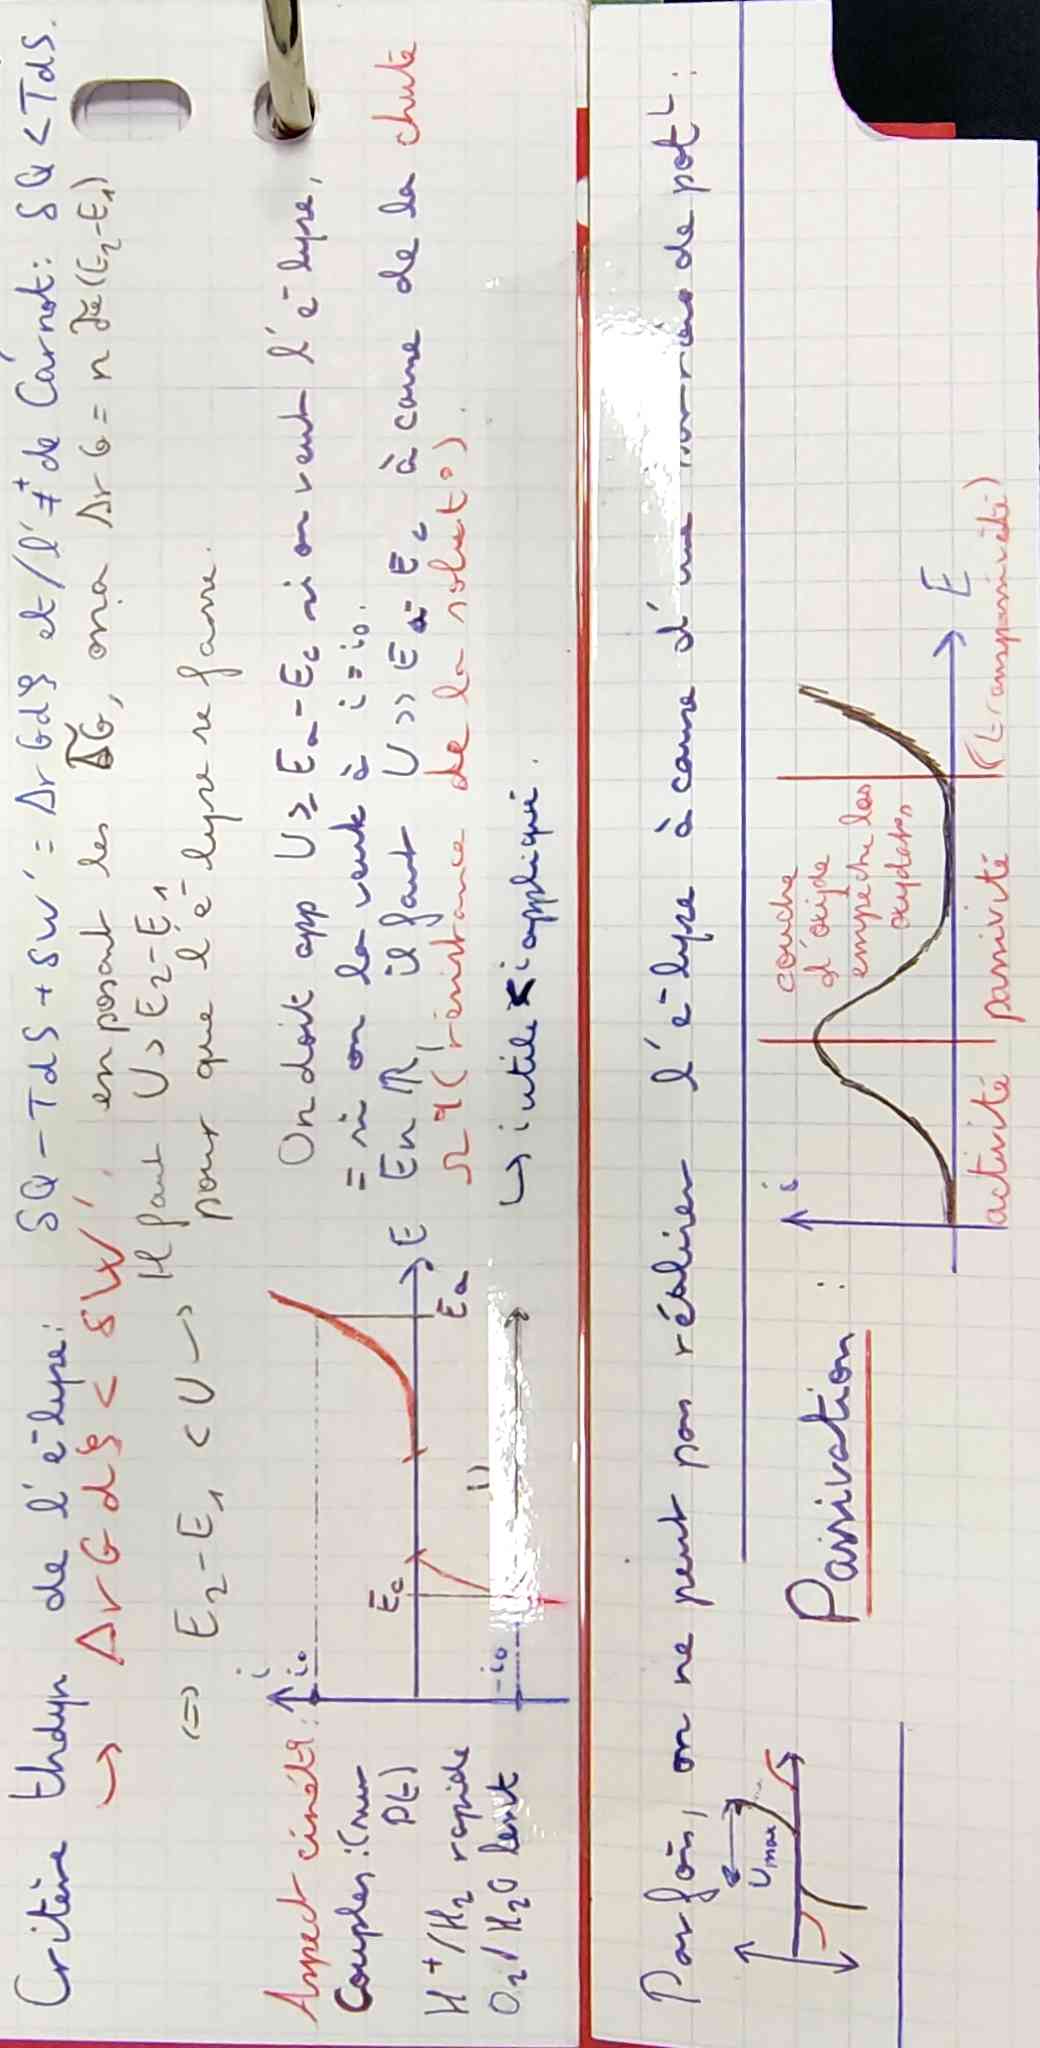 Critère thdyn de l'e-lyse: δQ - TdS + δW' = ΔrGdξ et/l'≠té de Carnot: δQ < TdS.
→ ΔrGdξ < δW', en posant les ΔG̃, on a ΔrG = nℱ(E2-E1)
⇔ E2-E1 < U → Il faut U > E2-E1
pour que l'e-lyse se fasse.
Aspect cinétq:
Couples: (sur Pt)
H+/H2 rapide
O2/H2O lent
i
i0
-i0
Ec
Ea
E
On doit app U ≥ Ea-Ec si on veut l'e-lyse,
= si on la veut à i = i0.
En ℝ, il faut U >> Ea-Ec à cause de la chute
Ωq (résistance de la solut°).
↳ i utile < i appliqué.
Parfois, on ne peut pas réaliser l'e-lyse à cause d'une de potL:
Umax
Passivation:
i
E
couche
d'oxyde
empêche les
oxydat°s
activité
passivité
(transpassivité)